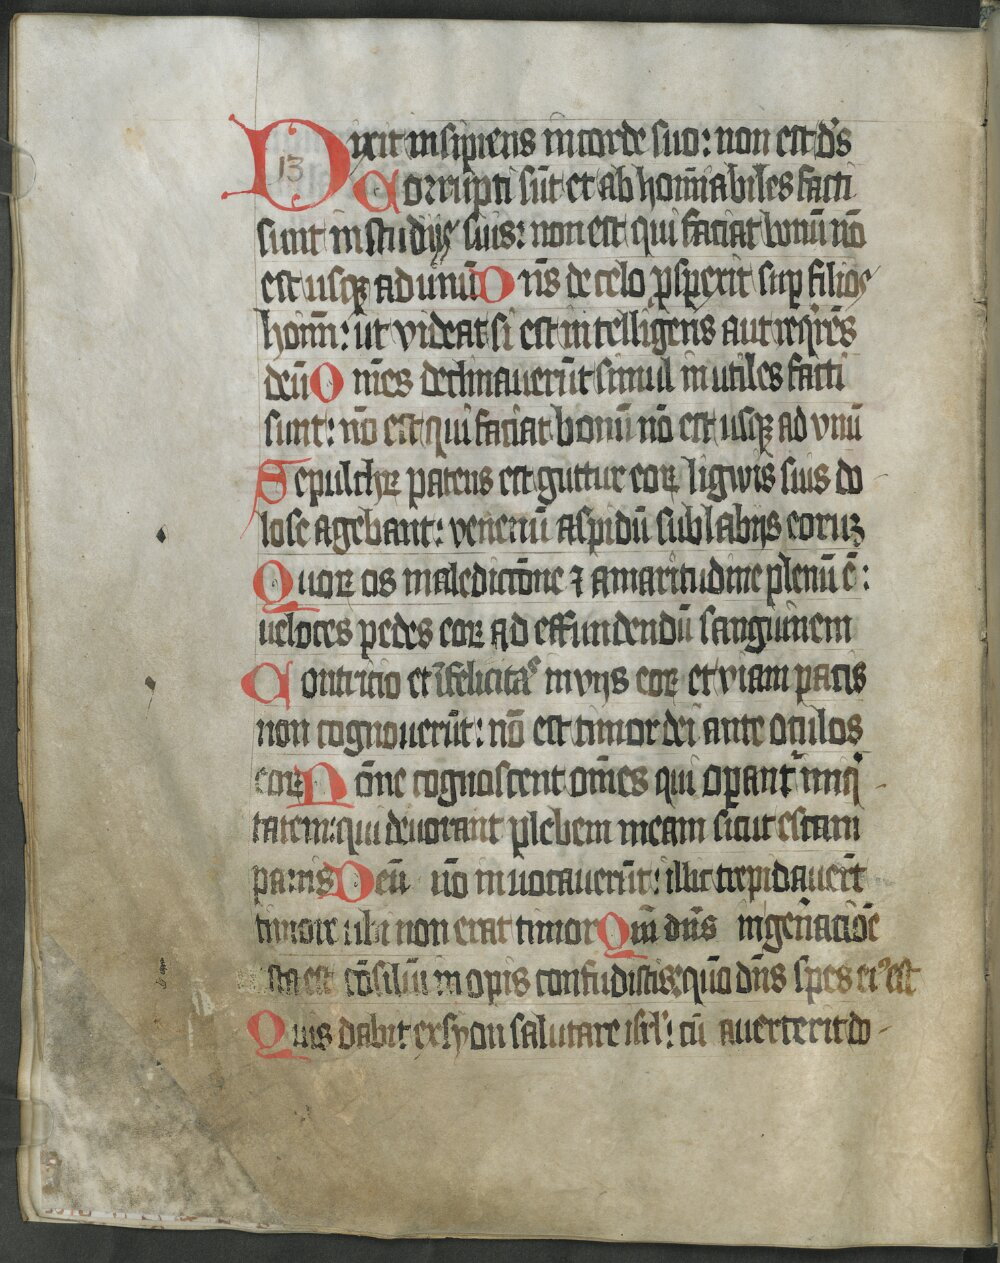 Dixit insipiens in corde suo: non est ds̄
13
Corrupti sūt et abhoīabiles facti
sunt in studijs suis: non est qui faciat bonū nō
est usqꝫ ad unū Dn̄s de celo ꝓspexit suꝑ filios
hom̄: ut videat si est intelligens aut reqͥrēs
deū Om̄es declinauerūt simul inutiles facti
sunt: nō est qui faciat bonū nō est usqꝫ ad vnū
Sepulchꝝ patens est guttur eoꝝ ligwis suis do
lose agebant: venenū aspidū sub labijs eoruꝫ
Quoꝝ os maledictōne ⁊ amaritudine plenū ē:
ueloces pedes eoꝝ ad effundendū sanguinem
Contricio et īfelicitas in vijs eoꝝ et viam pacis
non cognouerūt: nō est timor dei ante oculos
eoꝝ Nōne cognoscent om̄es qui oꝑant᷑ iniq̄
tatem: qui deuorant plebem meam sicut escam
panis Deū nō inuocauerūt: illic trepidauer̄t
timore ubi non erat timor Qm̄ dn̄s in gen̄aciōe
ista est cōsiliū inopis confudistis: quō dn̄s spes eiꝰ est
Quis dabit ex syon salutare isrl̄: cū auerterit do